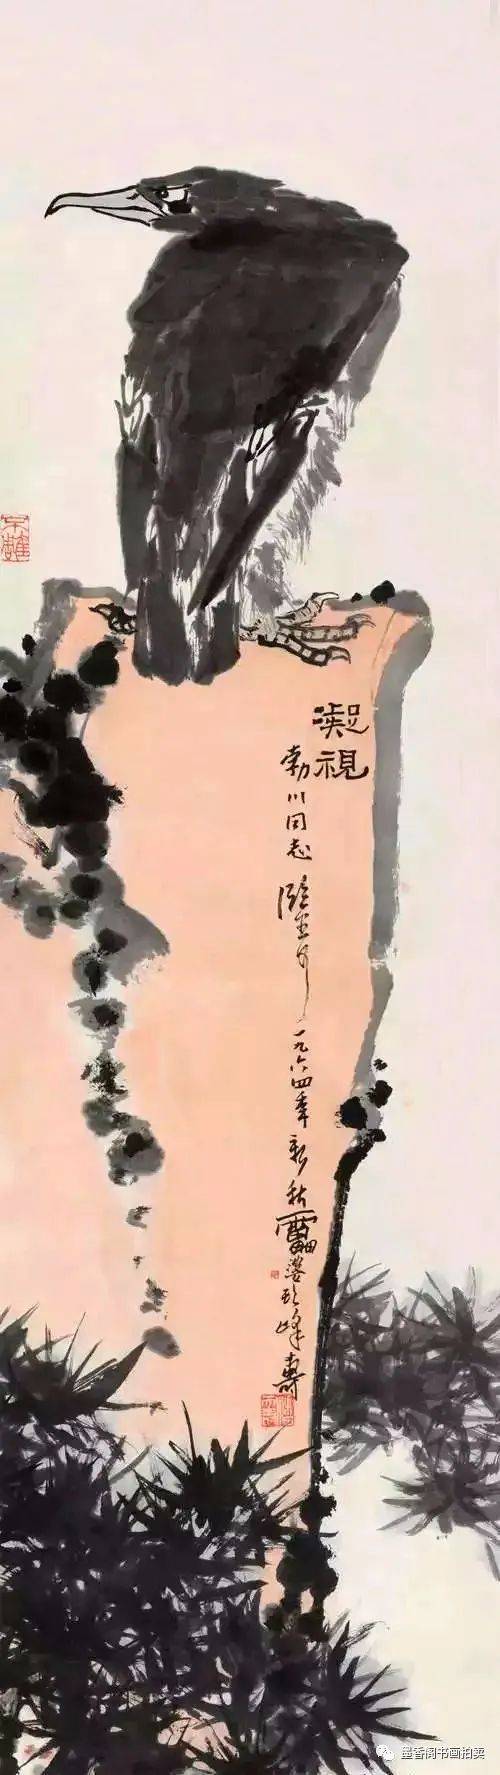 凝視
勃川同志正一九六四年新秋靁婆頭峰壽
不雕
墨香阁书画拍卖